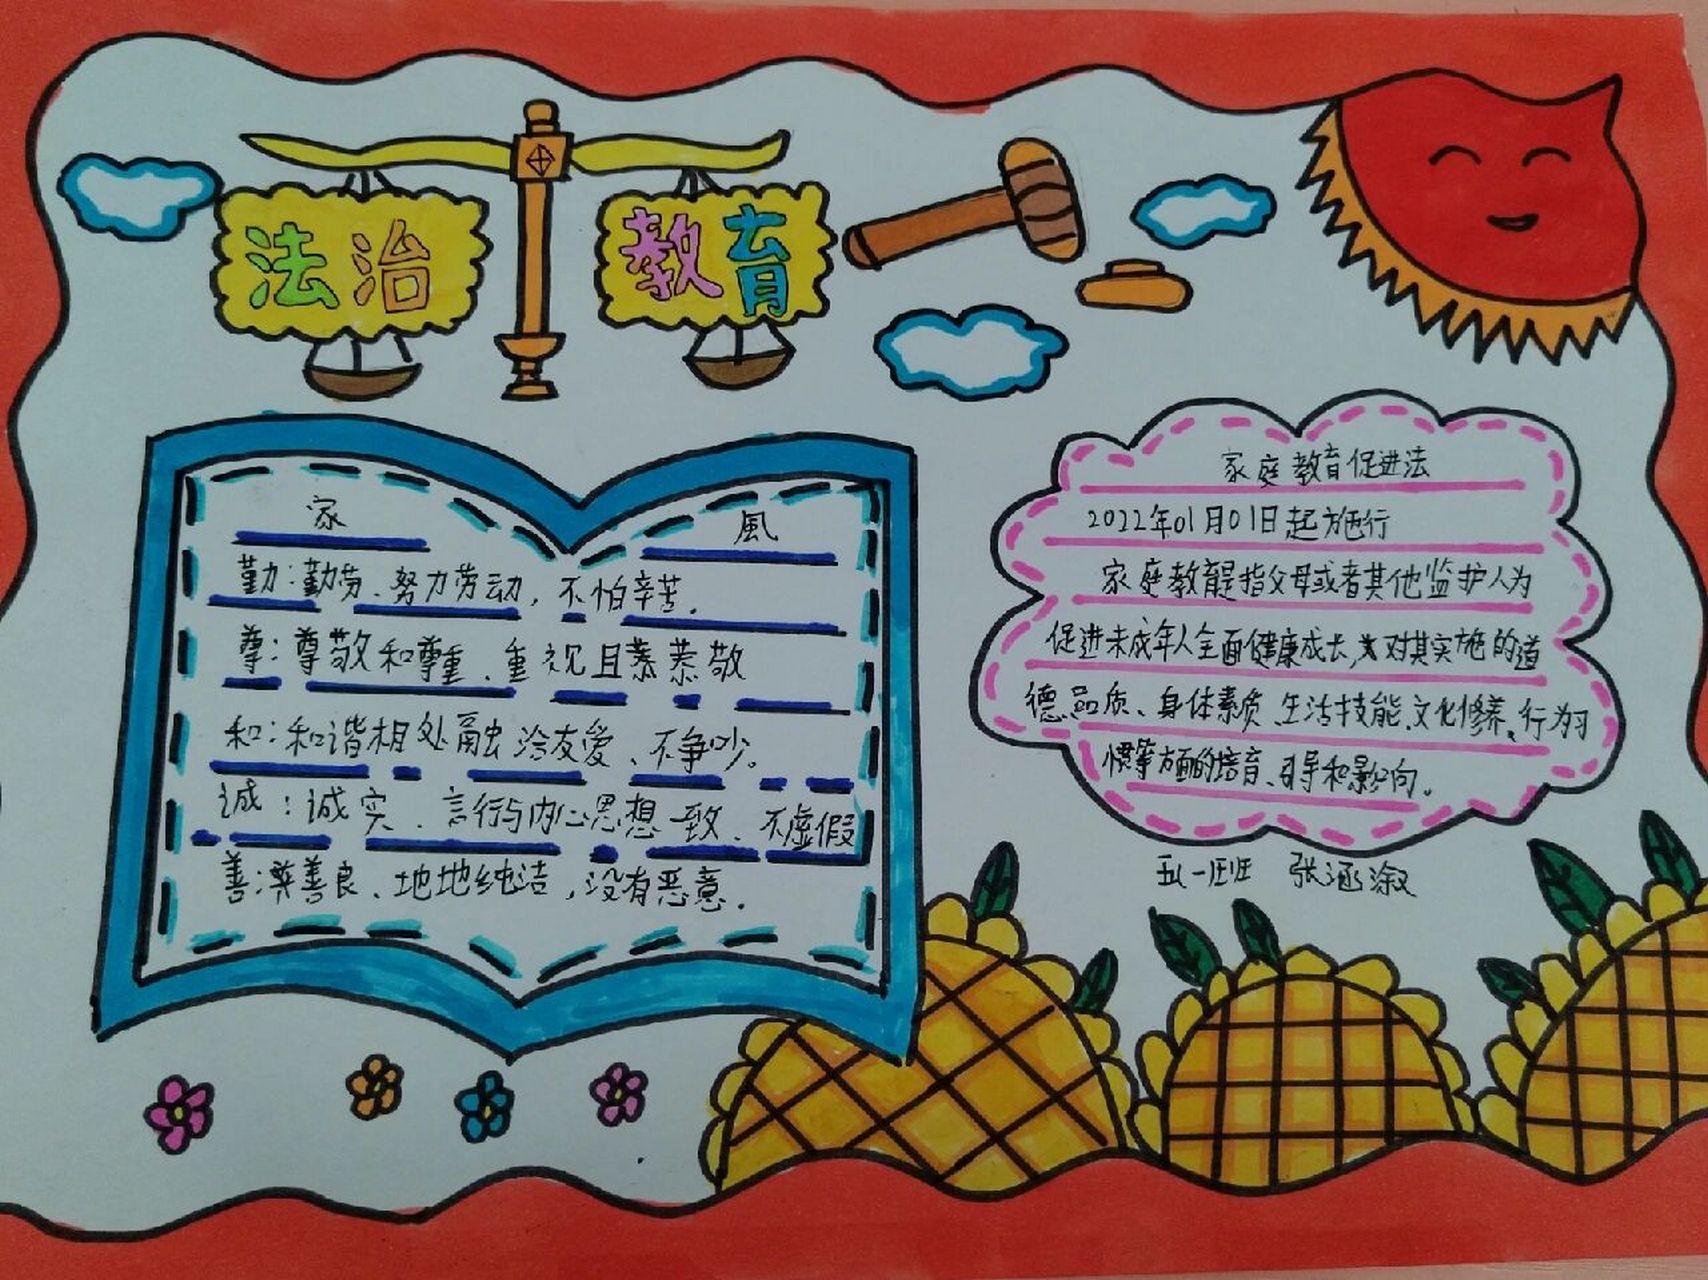 法治 教育
家 風
勤:勤劳、努力劳动,不怕辛苦.
尊:尊敬和尊重、重视且恭恭敬
和:和谐相处融洽友愛、不争吵。
诚:诚实、言行与内心思想一致、不虚假
善:善良、地地纯洁,没有恶意.
家庭教育促进法
2022年01月01日起施行
家庭教育是指父母或者其他监护人为
促进未成年人全面健康成长,对其实施的道
德品质、身体素质、生活技能、文化修养、行为习
惯等方面的培育、引导和影响。
五一班 张涵淑